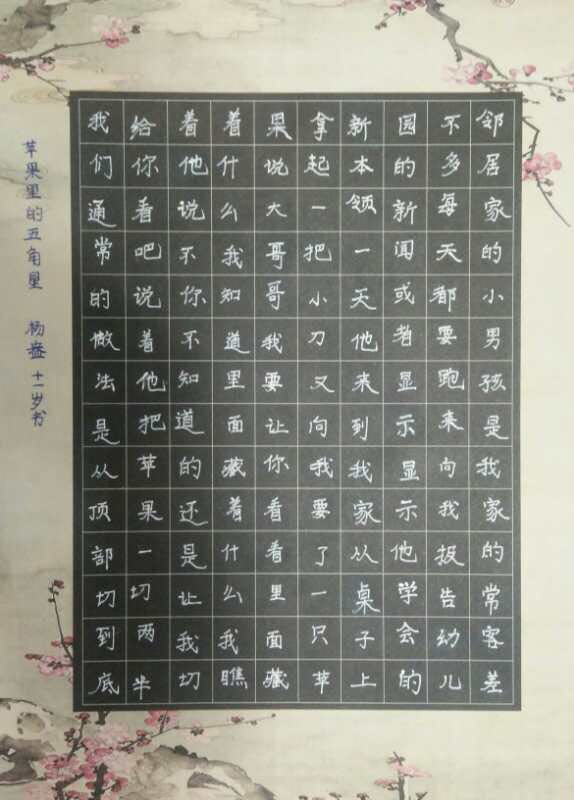 邻居家的小男孩是我家的常客差
不多每天都要跑来向我报告幼儿
园的新闻或者显示显示他学会的
新本领一天他来到我家从桌子上
拿起一把小刀又向我要了一只苹
果说大哥哥我要让你看看里面藏
着什么我知道里面藏着什么我瞧
着他说不你不知道的还是让我切
给你看吧说着他把苹果一切两半
我们通常的做法是从顶部切到底
苹果里的五角星 杨 十一岁书